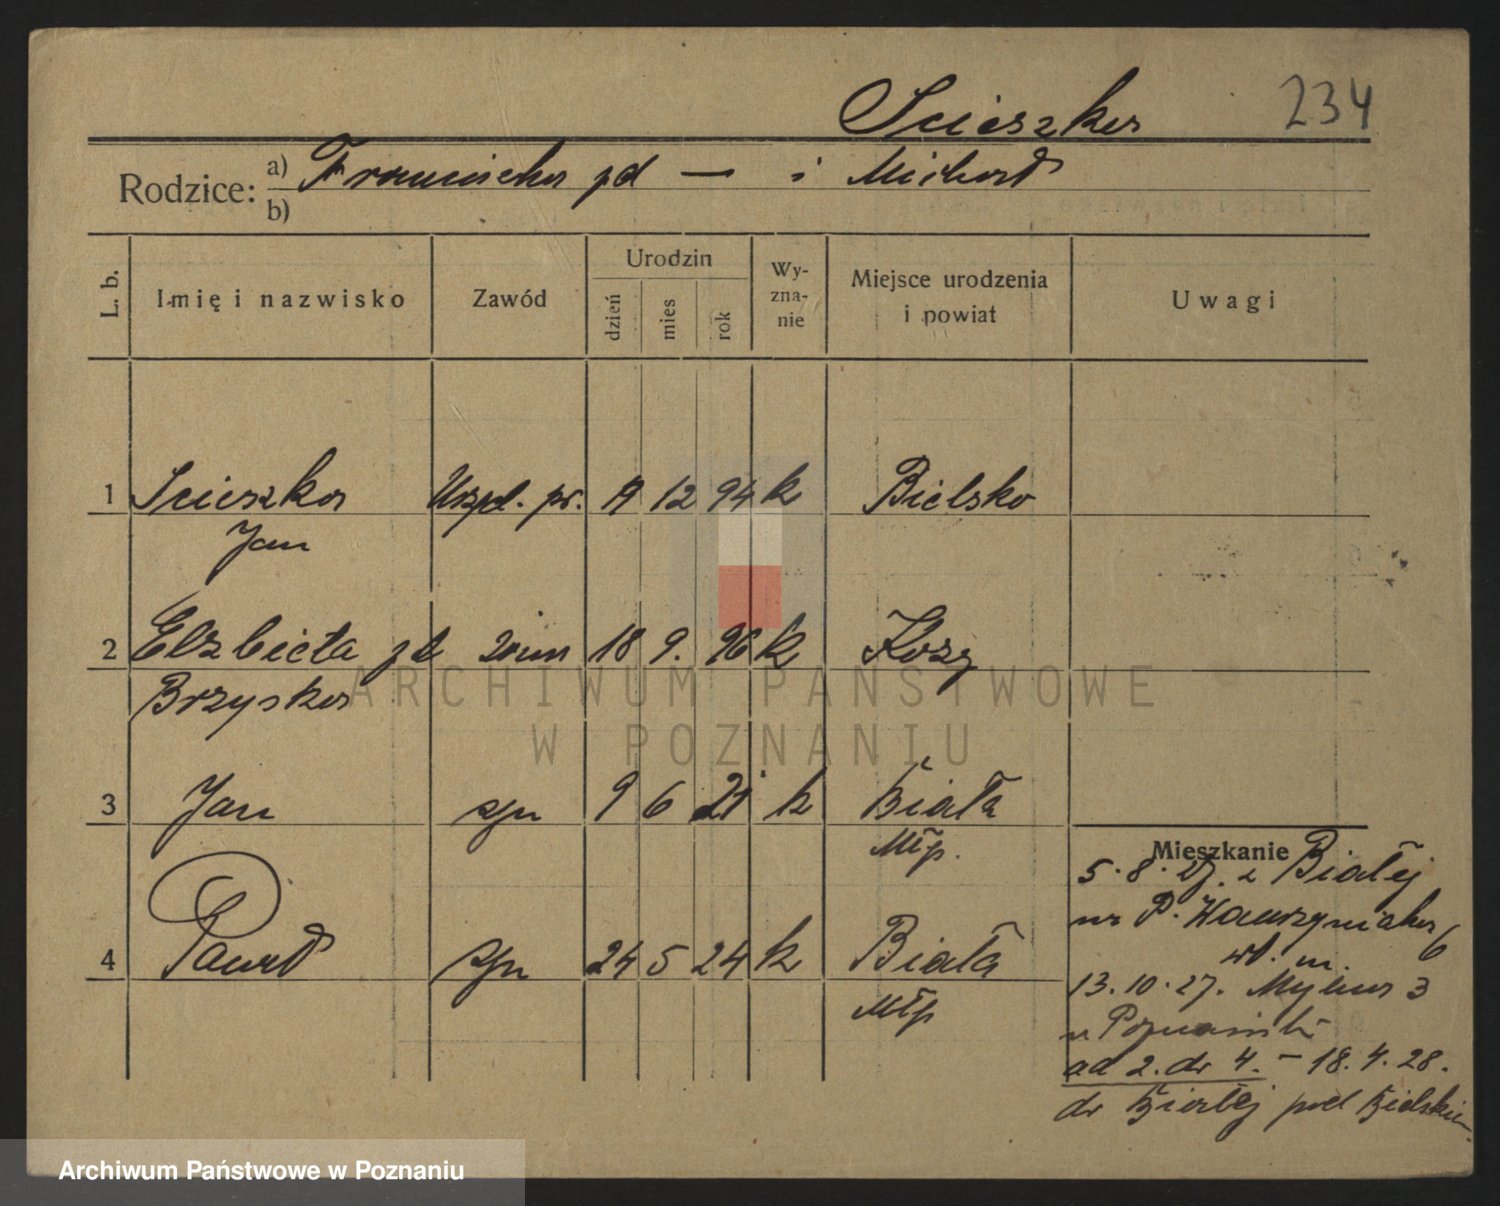 Scieszka 234
Rodzice: a) Franciszka zd — i Michał
b)
L. b. Imię i nazwisko Zawód Urodzin dzień mies rok Wyznanie Miejsce urodzenia i powiat Uwagi
1 Scieszka Urzęd. pr. 19 12 94 k Bielsko
Jan
2 Elżbieta zd żona 18 9. 96 k Kozy
Brzyska
3 Jan syn 9 6 21 k Biała
Młp.
4 Paweł syn 24 5 24 k Biała
Młp
Mieszkanie
5.8.27. z Białej
na P. Wawrzyniaka 6
13.10.27. 3
w
ad 2. do 4. – 18.4.28.
do Białej pod Bielskiem.
ARCHIWUM PAŃSTWOWE
W POZNANIU
Archiwum Państwowe w Poznaniu